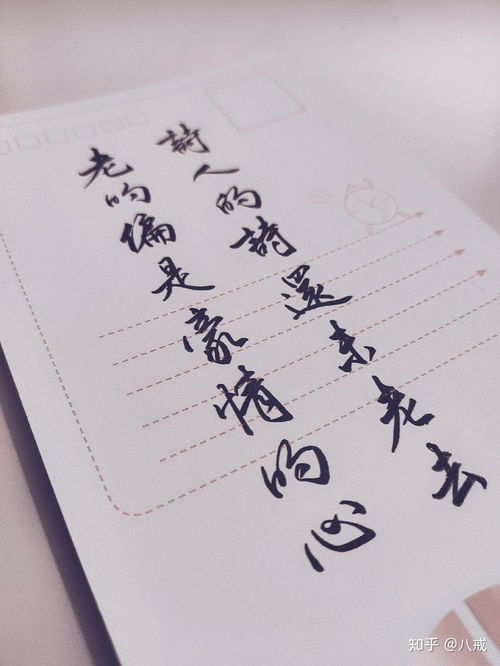 詩人的詩還未老去
老的偏是豪情的心
知乎 @八戒